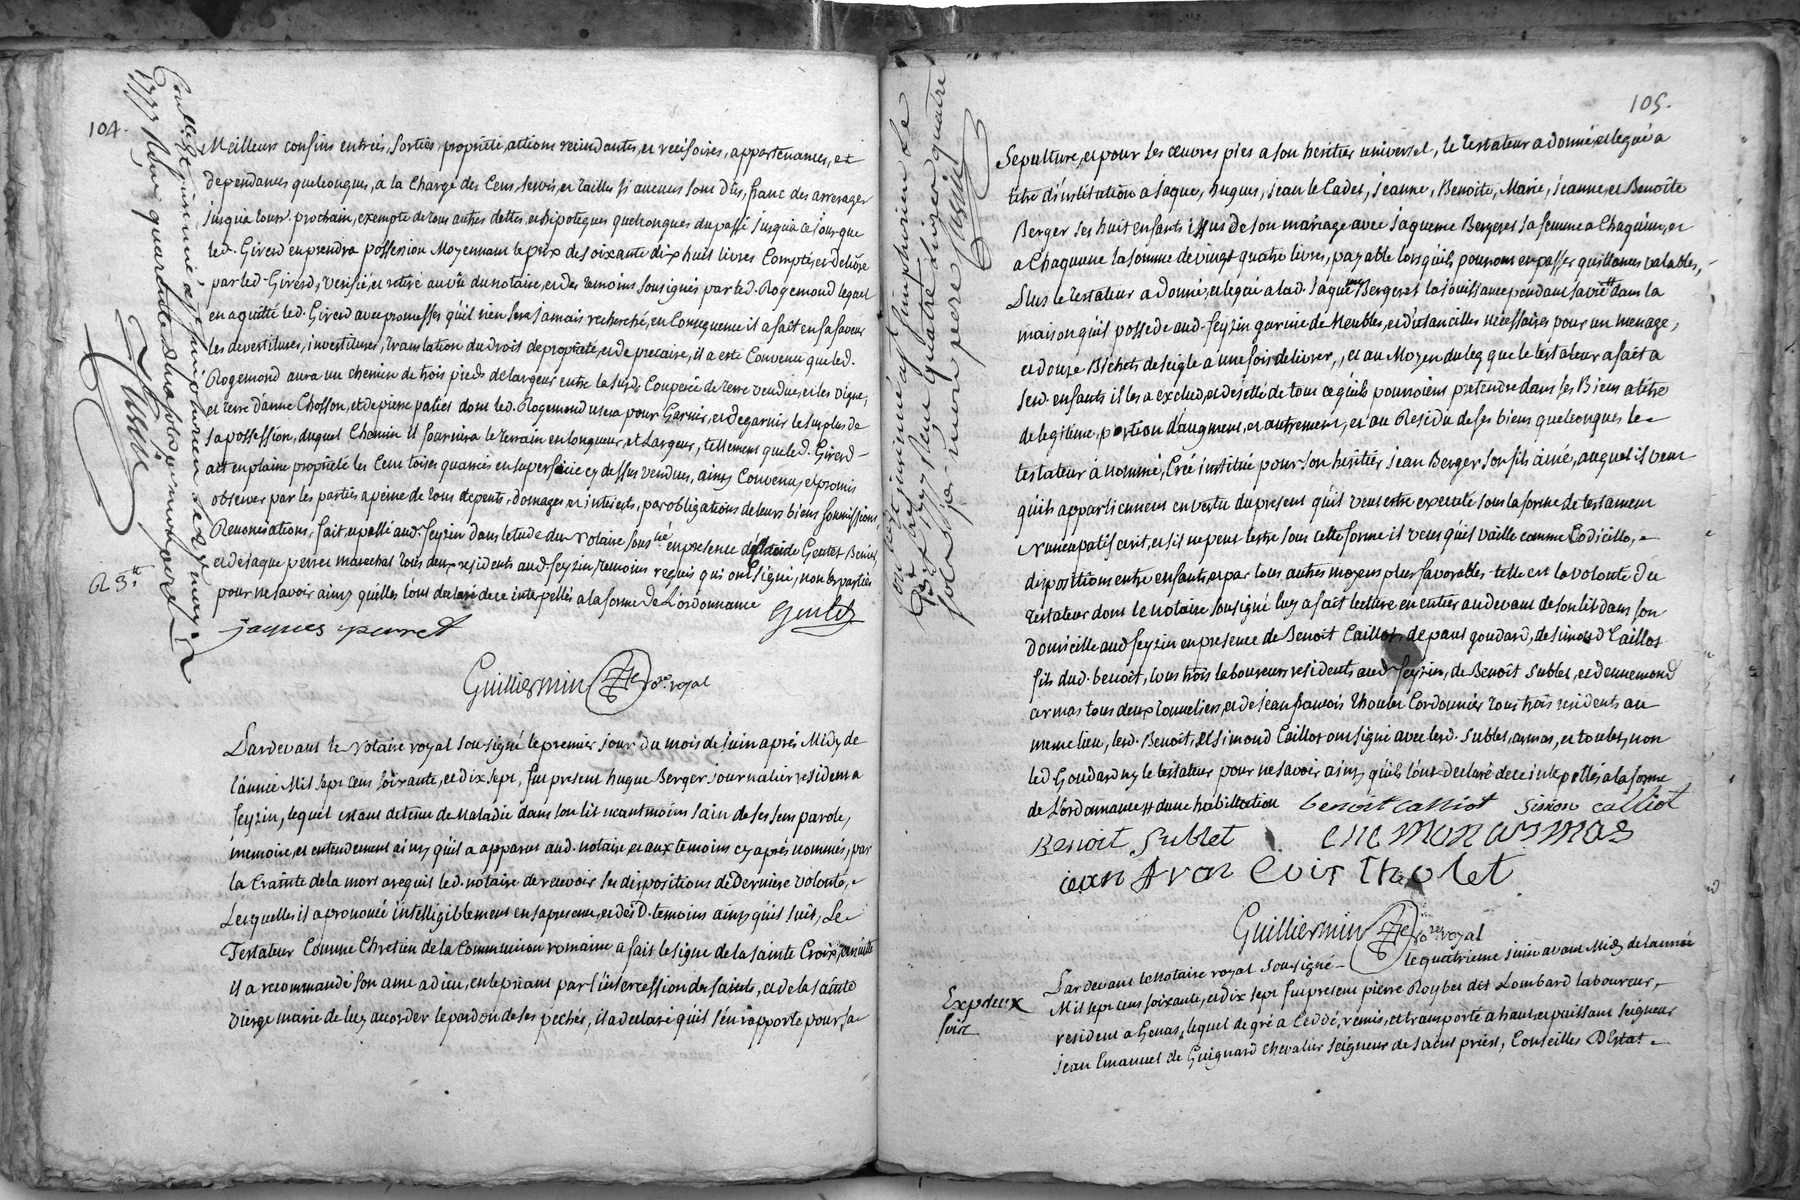 104.
Meilleurs confins entrées, sorties, propriété, actions rescindantes, et rescisoires, appartenances, et
dependances quelconques, a la Charge des Cens, servis, et tailles si aucuns sont dus, franc des arrerages
jusqu'a lours prochain, exempte de tous autres dettes, et hipoteques quelconques du passé jusqu'a ce jour que
led. Girerd en prendra possession Moyennant le prix de soixante dix huit livres Comptés, et delivré
par led. Girerd, verifié, et retiré au vû du notaire, et des temoins sousignés par led. Rogemond lequel
en a quitté led. Girerd avec promesses qu'il n'en sera jamais recherché, en Consequence il a fait en sa faveur
les devestitures, investitures, translation du droit de propriété, et de precaire, il a esté Convenu que led.
Rogemond aura un chemin de trois pieds de largeur entre la susd. Couperée de terre vendue, et les vigne,
et terre d'anne Chosson, et de pierre paliet dont led. Rogemond usera pour Garnir, et degarnir le surplus de
sa possession, duquel Chemin il fournira le terrain en longueur, et Largeur, tellement que led. Girerd
ait en plaine propriété les Cent toises quarrées en superficie cy dessus vendues, ainsy Convenu, et promis
observer par les parties a peine de tous depents, domages et interets, par obligations de leurs biens soumissions
Renonciations, fait, et passé aud. feyzin dans l'etude du Notaire sous.né en presence de Gentet Benier,
et de jaque perret marechal tous deux residents aud. feyzin, temoins requis qui ont signé, non les parties
pour ne savoir ainsy quelles l'ont declaré de ce interpellés a la forme de L'ordonnance
jaques perret
Guilliermin No.re royal
Pardevant le Notaire royal sousigné le premier jour du mois de juin aprés Midy de
l'année Mil sept cens soixante, et dix sept, fut present hugue Berger journalier resident a
feyzin, lequel estant detenu de Maladie dans son lit neantmoins sain de ses sens parole,
memoire, et entendement ainsy qu'il a apparut aud. notaire, et aux temoins cy aprés nommés, par
la Crainte de la mort a requit led. notaire de recevoir ses dispositions de Derniere volonté,
Lesquelles il a prononcé intelligiblement en sa presence, et des D. temoins ainsy qu'il suit, Le
Testateur Comme Chretien de la Communion romaine a fait le signe de la Sainte Croix, ensuitte
il a recommandé son ame a dieu, en le priant par l'intercession des saints, et de la sainte
Vierge marie de luy accorder le pardon de ses pechés, il a declaré qu'il s'en rapporte pour sa
105.
Sepulture, et pour Les œuvres pies a son heritier universel, le testateur a donné, et legué a
titre d'institution a jaque, hugues, jean le Cadet, jeanne, Benoite, Marie, jeanne, et Benoite
Berger ses huit enfants issus de son mariage avec jaqueme Bergeret sa femme a Chaqu'un, et
a Chaqueune la somme de vingt quatre livres, payable lorsqu'ils pourront en passer quittances valables,
Plus le testateur a donné, et legué a lad. jaqueme Bergeret la jouissance pendant sa vie dans la
maison qu'il possede aud. feyzin garnie de Meubles, et d'utancilles nécessaires pour un menage,
et douze Bichets de seigle a une fois delivrer, et au Moyen du leg que le testateur a fait a
sesd. enfants il les a exclud, et desetté de tout ce qu'ils pourroient pretendre dans ses Biens a titre
de legitime, portion d'augment, et autrement, et au Residu de ses biens quelconques le
testateur a nommé, Créé institué pour son heritier jean Berger son fils ainé, auquel il veut
qu'ils appartiennent en vertu du present qu'il veut estre executé sous la forme de testament
Nuncupatif ecrit, et s'il ne peut l'estre sous cette forme il veut qu'il vaille comme Codicille,
dispositions entre enfants, et par tous autres moyens plus favorables telle est la volonté du
testateur dont le notaire sousigné luy a fait lecture en entier au devant de son lit dans son
domicille aud. feyzin en presence de Benoit Calliot, de paul goudard, de simond Calliot
fils dud. benoit, tous trois laboureurs residents aud. feyzin, de Benoit Sublet, et d'ennemond
armas tous deux tonneliers, et de jean françois thoulet Cordonnier tous trois residents au
meme lieu, lesd. Benoit, et Simond Calliot ont signé avec lesd. Sublet, armas, et toulet, non
led. Goudard ny le testateur pour ne savoir ainsy qu'ils l'ont declaré de ce interpellés a la forme
de L'ordonnance # d'une habillation benoit Calliot simon calliot
Benoit Sublet enemon armas
jean fran coix tholet
Guilliermin No.re royal
Pardevant le Notaire royal sousigné le quatrieme juin avant Midy de l'année
Exp. deux
fois
Mil sept cens soixante, et dix sept fut present pierre Roybet dit Lombard laboureur,
resident a Genas, lequel de gré a Ceddé, remis, et transporté a haut, et puissant seigneur
jean Emanuel de Guignard chevalier seigneur de saint priest, Conseiller D'Estat